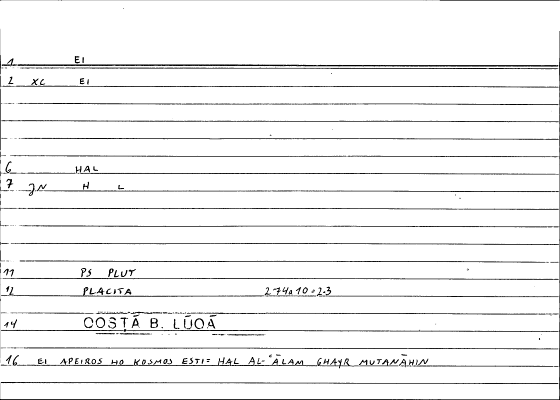 1 EI
2 XC EI
6 HAL
7 JN H L
11 PS PLUT
12 PLACITA 274a10 = 2.3
14 COSṬĀ B. LŪQĀ
16 EI APEIROS HO KOSMOS ESTI = HAL AL-ʿĀLAM GHAYR MUTANĀHIN